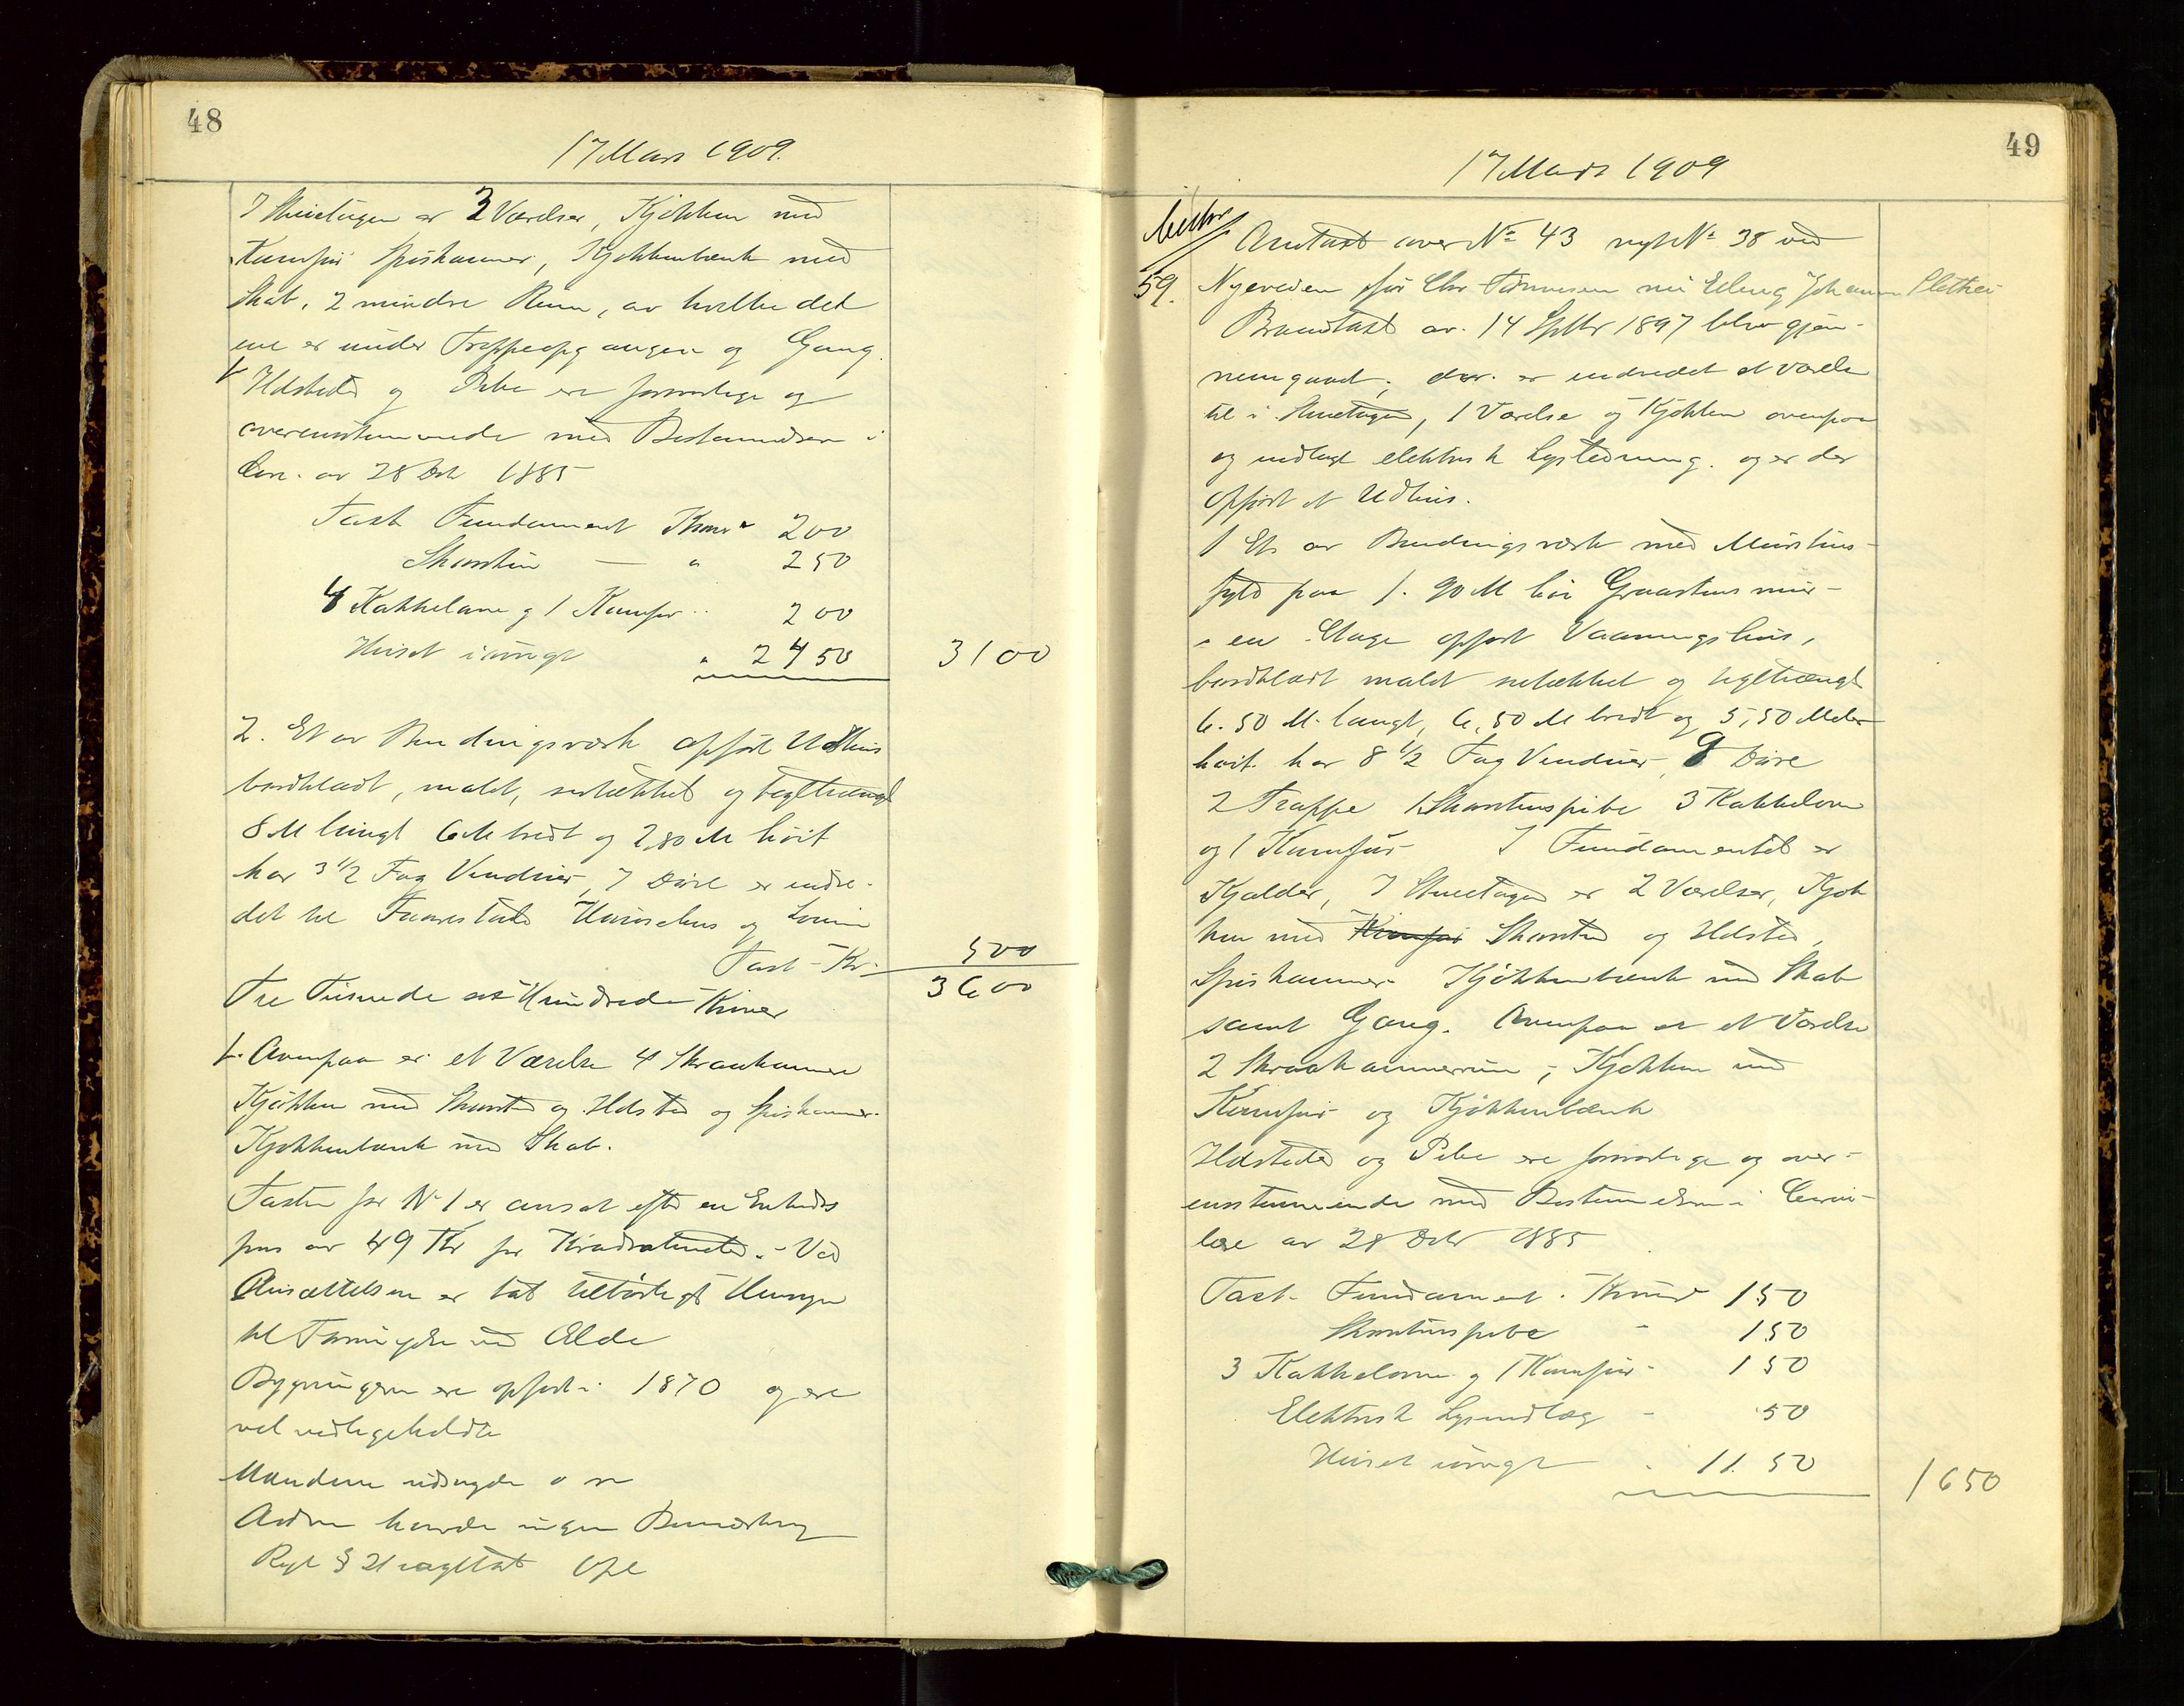 48
17 Mars 1909.
I Stuetagen er 3 Værelser, Kjøkken med
Komfur Spiskammer, Kjøkkenbænk med
Skab, 2 mindre Rum, av hvilke det
ene er under Trappeopgangen og Gang.
Ildsteder og Pibe ere forsvarlige og
overensstemmende med Bestemmelsen i
Circ. av 28 Dcb 1885
Taxt Fundament Kroner 200
Skorsten — " 250
4 Kakkelovne og 1 Komfur " 200
Huset iøvrigt " 2450 3100
2. Et av Bindingsværk opført Udhus
bordklædt, malt, netækket og tegltrængt
8 M langt 6 M bredt og 2,80 M høit
har 3 1/2 Fag Vinduer, 7 Døre er indre-
det til
Taxt - Kr. 500
Tre Tusinde sex Hundrede Kroner 3600
Ovenpaa er et Værelse 4 Skraakammere
Kjøkken med Skorsten og Ildsted og Spiskammer
Kjøkkenbænk med Skab.
Taxten for No 1 er ansat efter en Enheds
pris av 49 Kr for Kvadratmeter. - Ved
Ansættelsen er tat tilbørligt Hensyn
til Forringelse ved Ælde
Bygningerne ere opført i 1870 og ere
vel vedligeholdte
Mændene udsagde o s v
Andre havde ingen Bemærkning
Regl § 21 iagttat Opl
49
17 Mars 1909
59.
Omtaxt over No 43 nyt No 38 ved
Nyeveien før Chr Tønnesen nu Elling Johannes Slettei
Brandtaxt av 14 Sptbr 1897 blev gjen-
nemgaaet; der er indredet et Værelse
til i Stuetagen, 1 Værelse og Kjøkken ovenpaa
og indlagt elektrisk Lysledning. og er der
opført et Udhus.
1 Et av Bindingsværk med Murstens-
fyld paa 1.90 M høi Graastensmur-
i en Etage opført Vaaningshus,
bordklædt malt netækket og tegltrængt
6.50 M. langt, 6,50 M bredt og 5,50 Meter
høit. har 8 1/2 Fag Vinduer, 9 Døre
2 Trappe 1 Skorstenspibe 3 Kakkelovne
og 1 Komfur I Fundamentet er
Kjælder, I Stuetagen er 2 Værelser, Kjøk
ken med Komfur Skorsten og Ildsted,
Spiskammer Kjøkkenbænk med Skab
samt Gang. Ovenpaa er et Værelse
2 Skraakammerrum, Kjøkken med
Komfur og Kjøkkenbænk
Ildsteder og Pibe ere forsvarlige og over-
ensstemmende med Bestemmelsen i Circu-
lære av 28 Dcbr 1885
Taxt. Fundament. Kroner 150
Skorstenspibe - 150
3 Kakkelovne og 1 Komfur - 150
Elektrisk Lysindlæg - 50
Huset iøvrigt " 11.50 1650